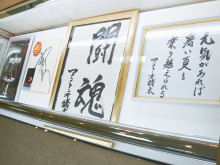 闘魂
アントニオ猪木
元気があれば
暑い夏も
乗り越えられる
アントニオ猪木